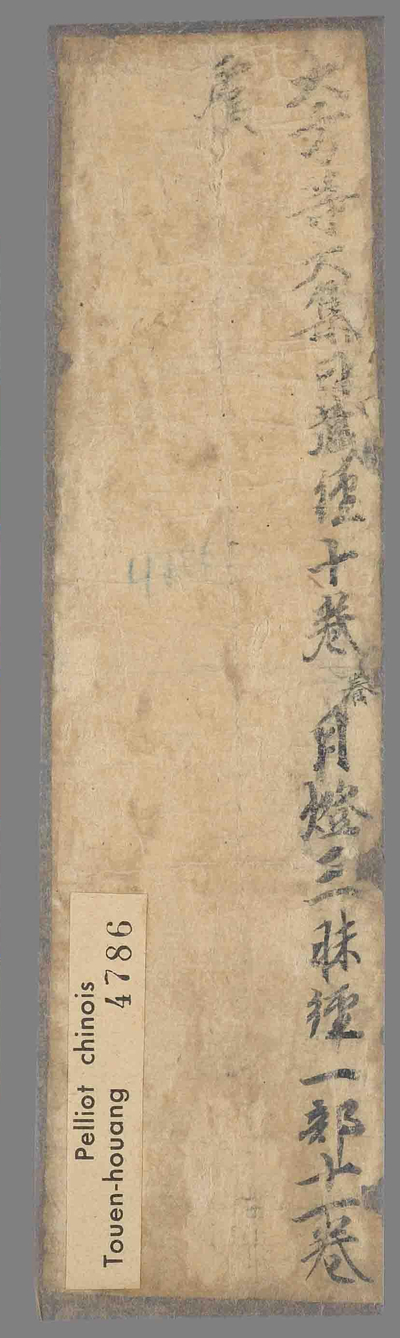 大方等大集日藏經十卷 月燈三昧經一部十一卷
Pelliot chinois
Touen-houang 4786